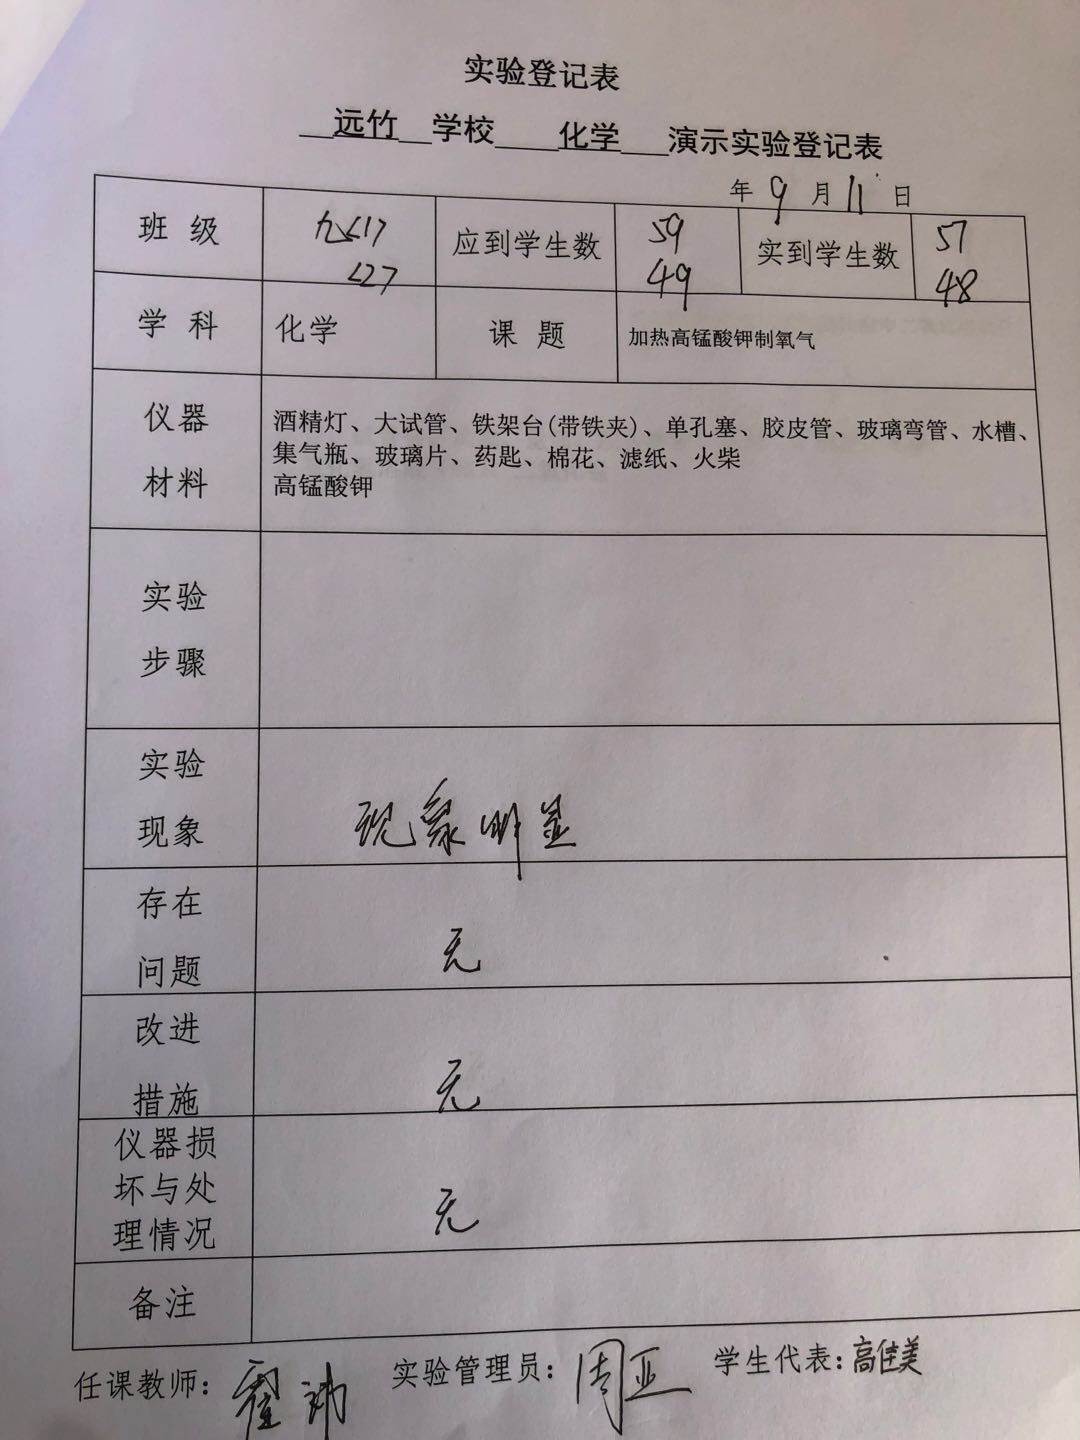 实验登记表
远竹 学校 化学 演示实验登记表
年 9 月 11 日
班 级 九<1> 应到学生数 59 实到学生数 57
<2> 49 48
学 科 化学 课 题 加热高锰酸钾制氧气
仪器
材料
酒精灯、大试管、铁架台(带铁夹)、单孔塞、胶皮管、玻璃弯管、水槽、
集气瓶、玻璃片、药匙、棉花、滤纸、火柴
高锰酸钾
实验
步骤
实验
现象
现象明显
存在
问题
无
改进
措施
无
仪器损
坏与处
理情况
无
备注
任课教师： 实验管理员：周亚 学生代表：高佳美